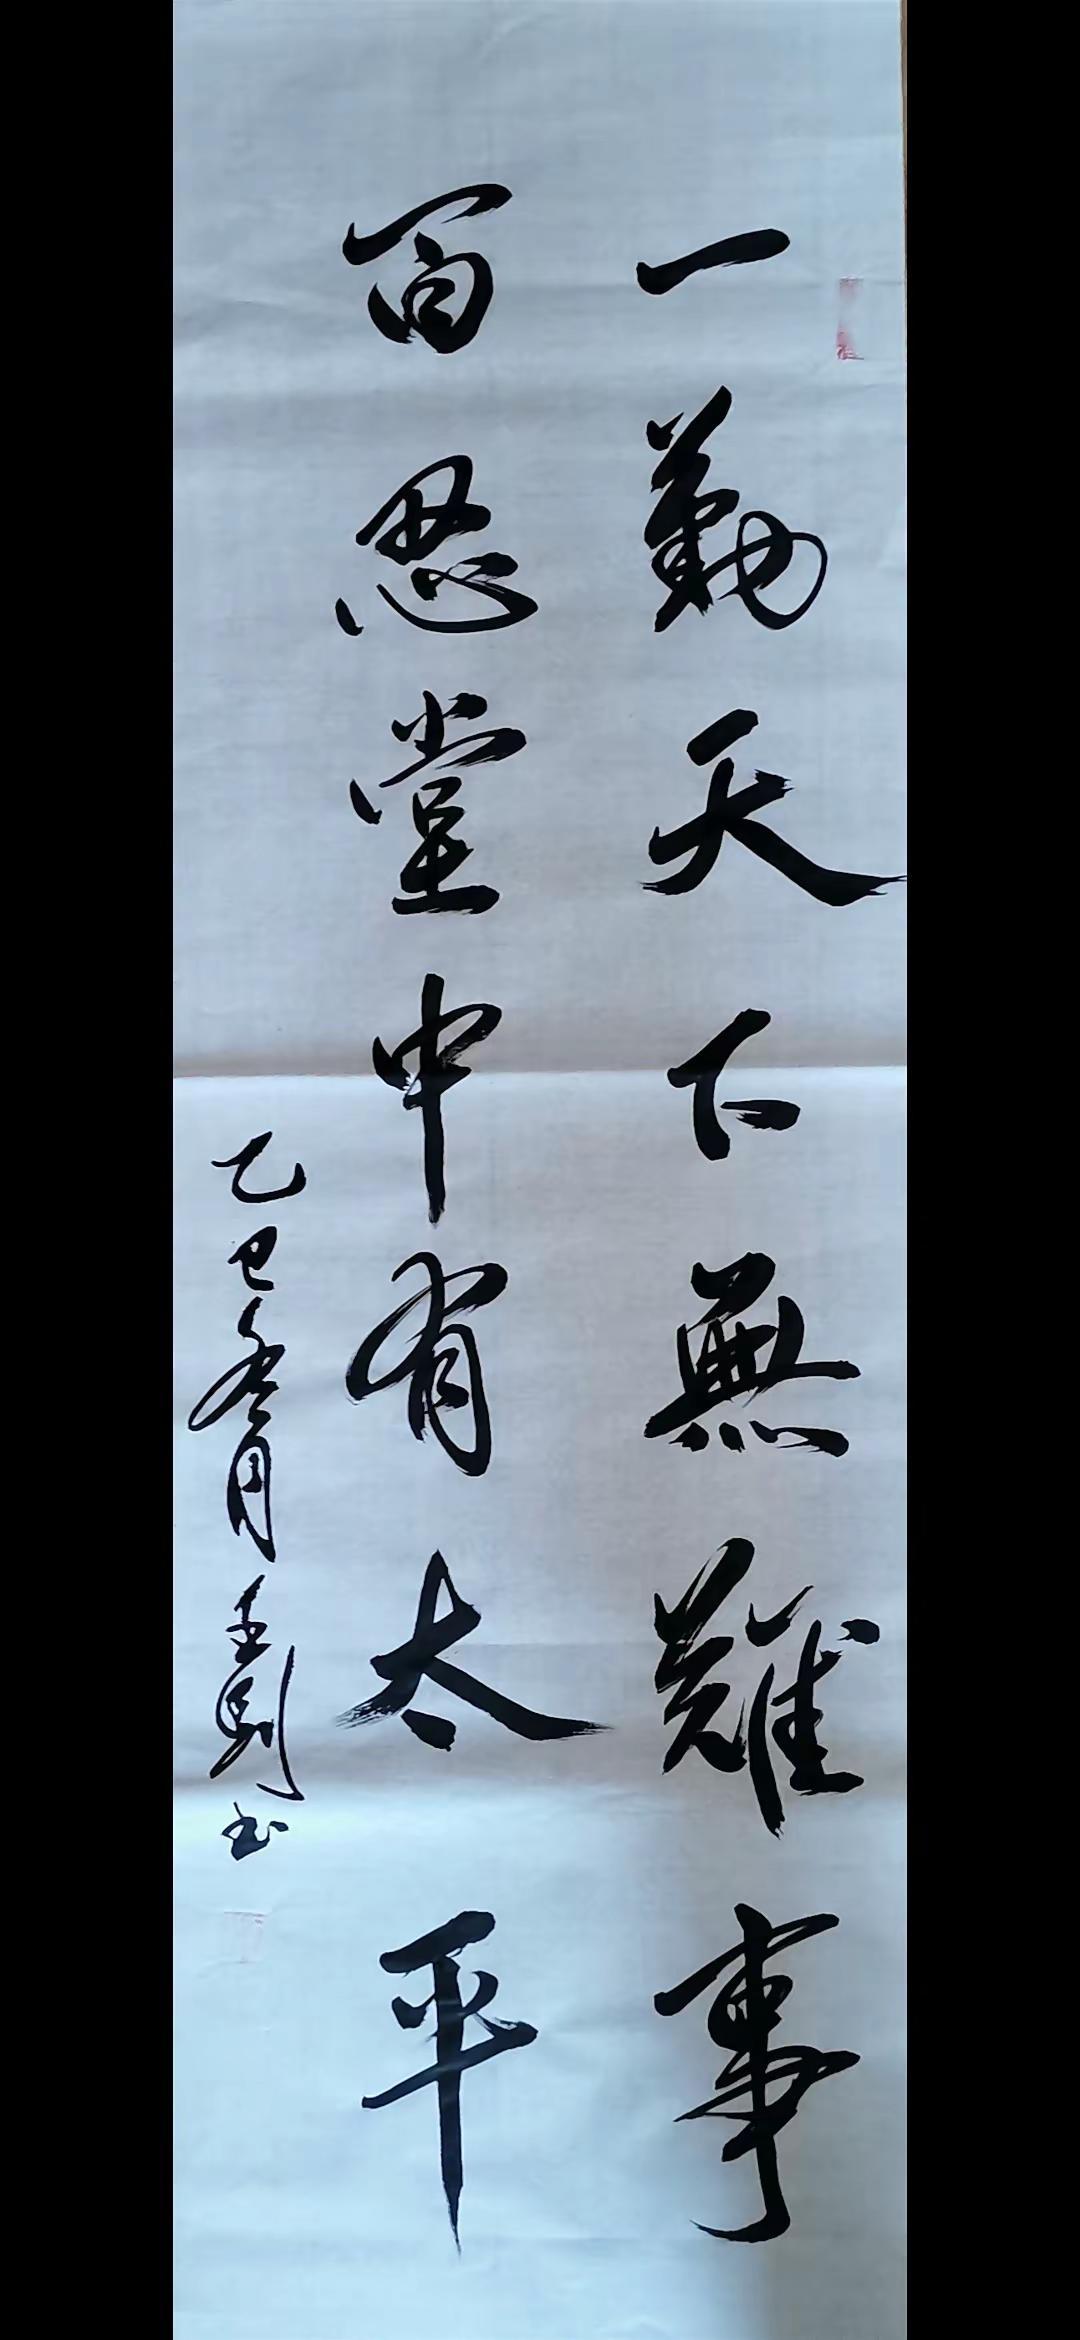 一勤天下無難事
百忍堂中有太平
乙巳冬月王剛书